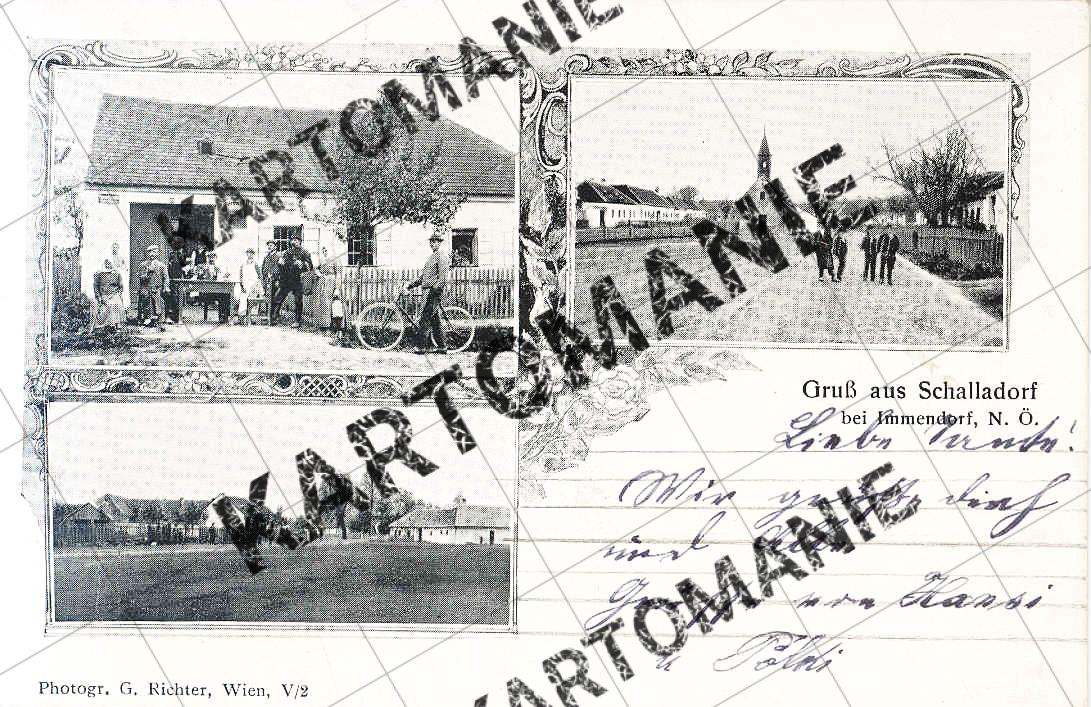 KARTOMANIE
KARTOMANIE
KARTOMANIE
KARTOMANIE
Gruß aus Schalladorf
bei Immendorf, N. Ö.
Liebe Tante!
Wir dich
und
von Hansi
u Poldi
Photogr. G. Richter, Wien, V/2